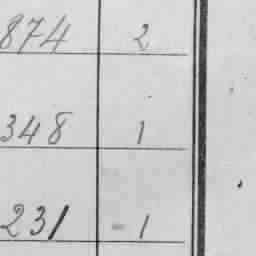 874 2
348 1
231 1